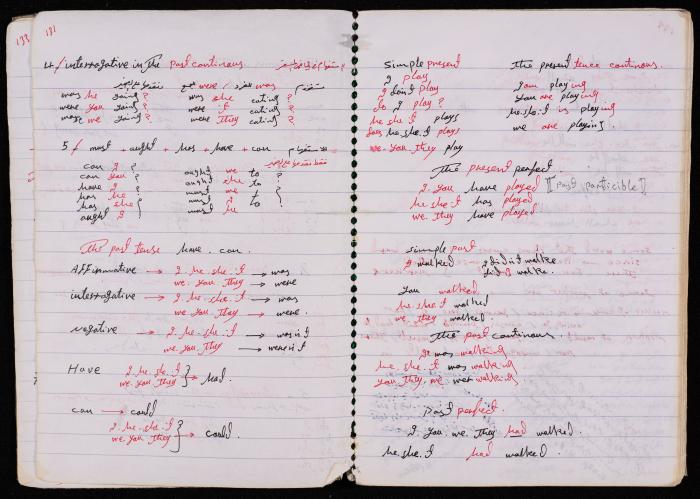 133 131
4/ interrogative in the past continous
was he going? was she eating?
were you going? were it eating?
were we going? were they eating?
5/ must + aught + has + have + can
can I ?
can you ? aught we to
have I ? aught she to
has he ? must we to
has she must I
aught I must he
The past tense have. can.
AFFirmative → I. he. she. it → was
we. you. they → were
interragative → I. he. she. it → was
we. you. they → were.
negative → I. he. she. it → was it
we. you. they → were it
Have I. he. she. it
we. you. they } → had.
can → could
I. he. she. it
we. you. they } → could.
Simple present
I play
I don't play
do I play?
he. she. it plays
does he. she. it plays
we. you. they play
the present tence continous.
I am playing
you are playing
he. she. it is playing
we are playing.
The present perfect
I. you have played [[past participle]]
he. she. it has played
we. they have played
simple past
I walked I did it walke
did I walke.
you walked
he. she. it walked
we they walked.
the past continous
I was walking
he. she. it was walking
you. they. we wer walking
past perfect.
I. you. we. they had walked.
he. she. it had walked.